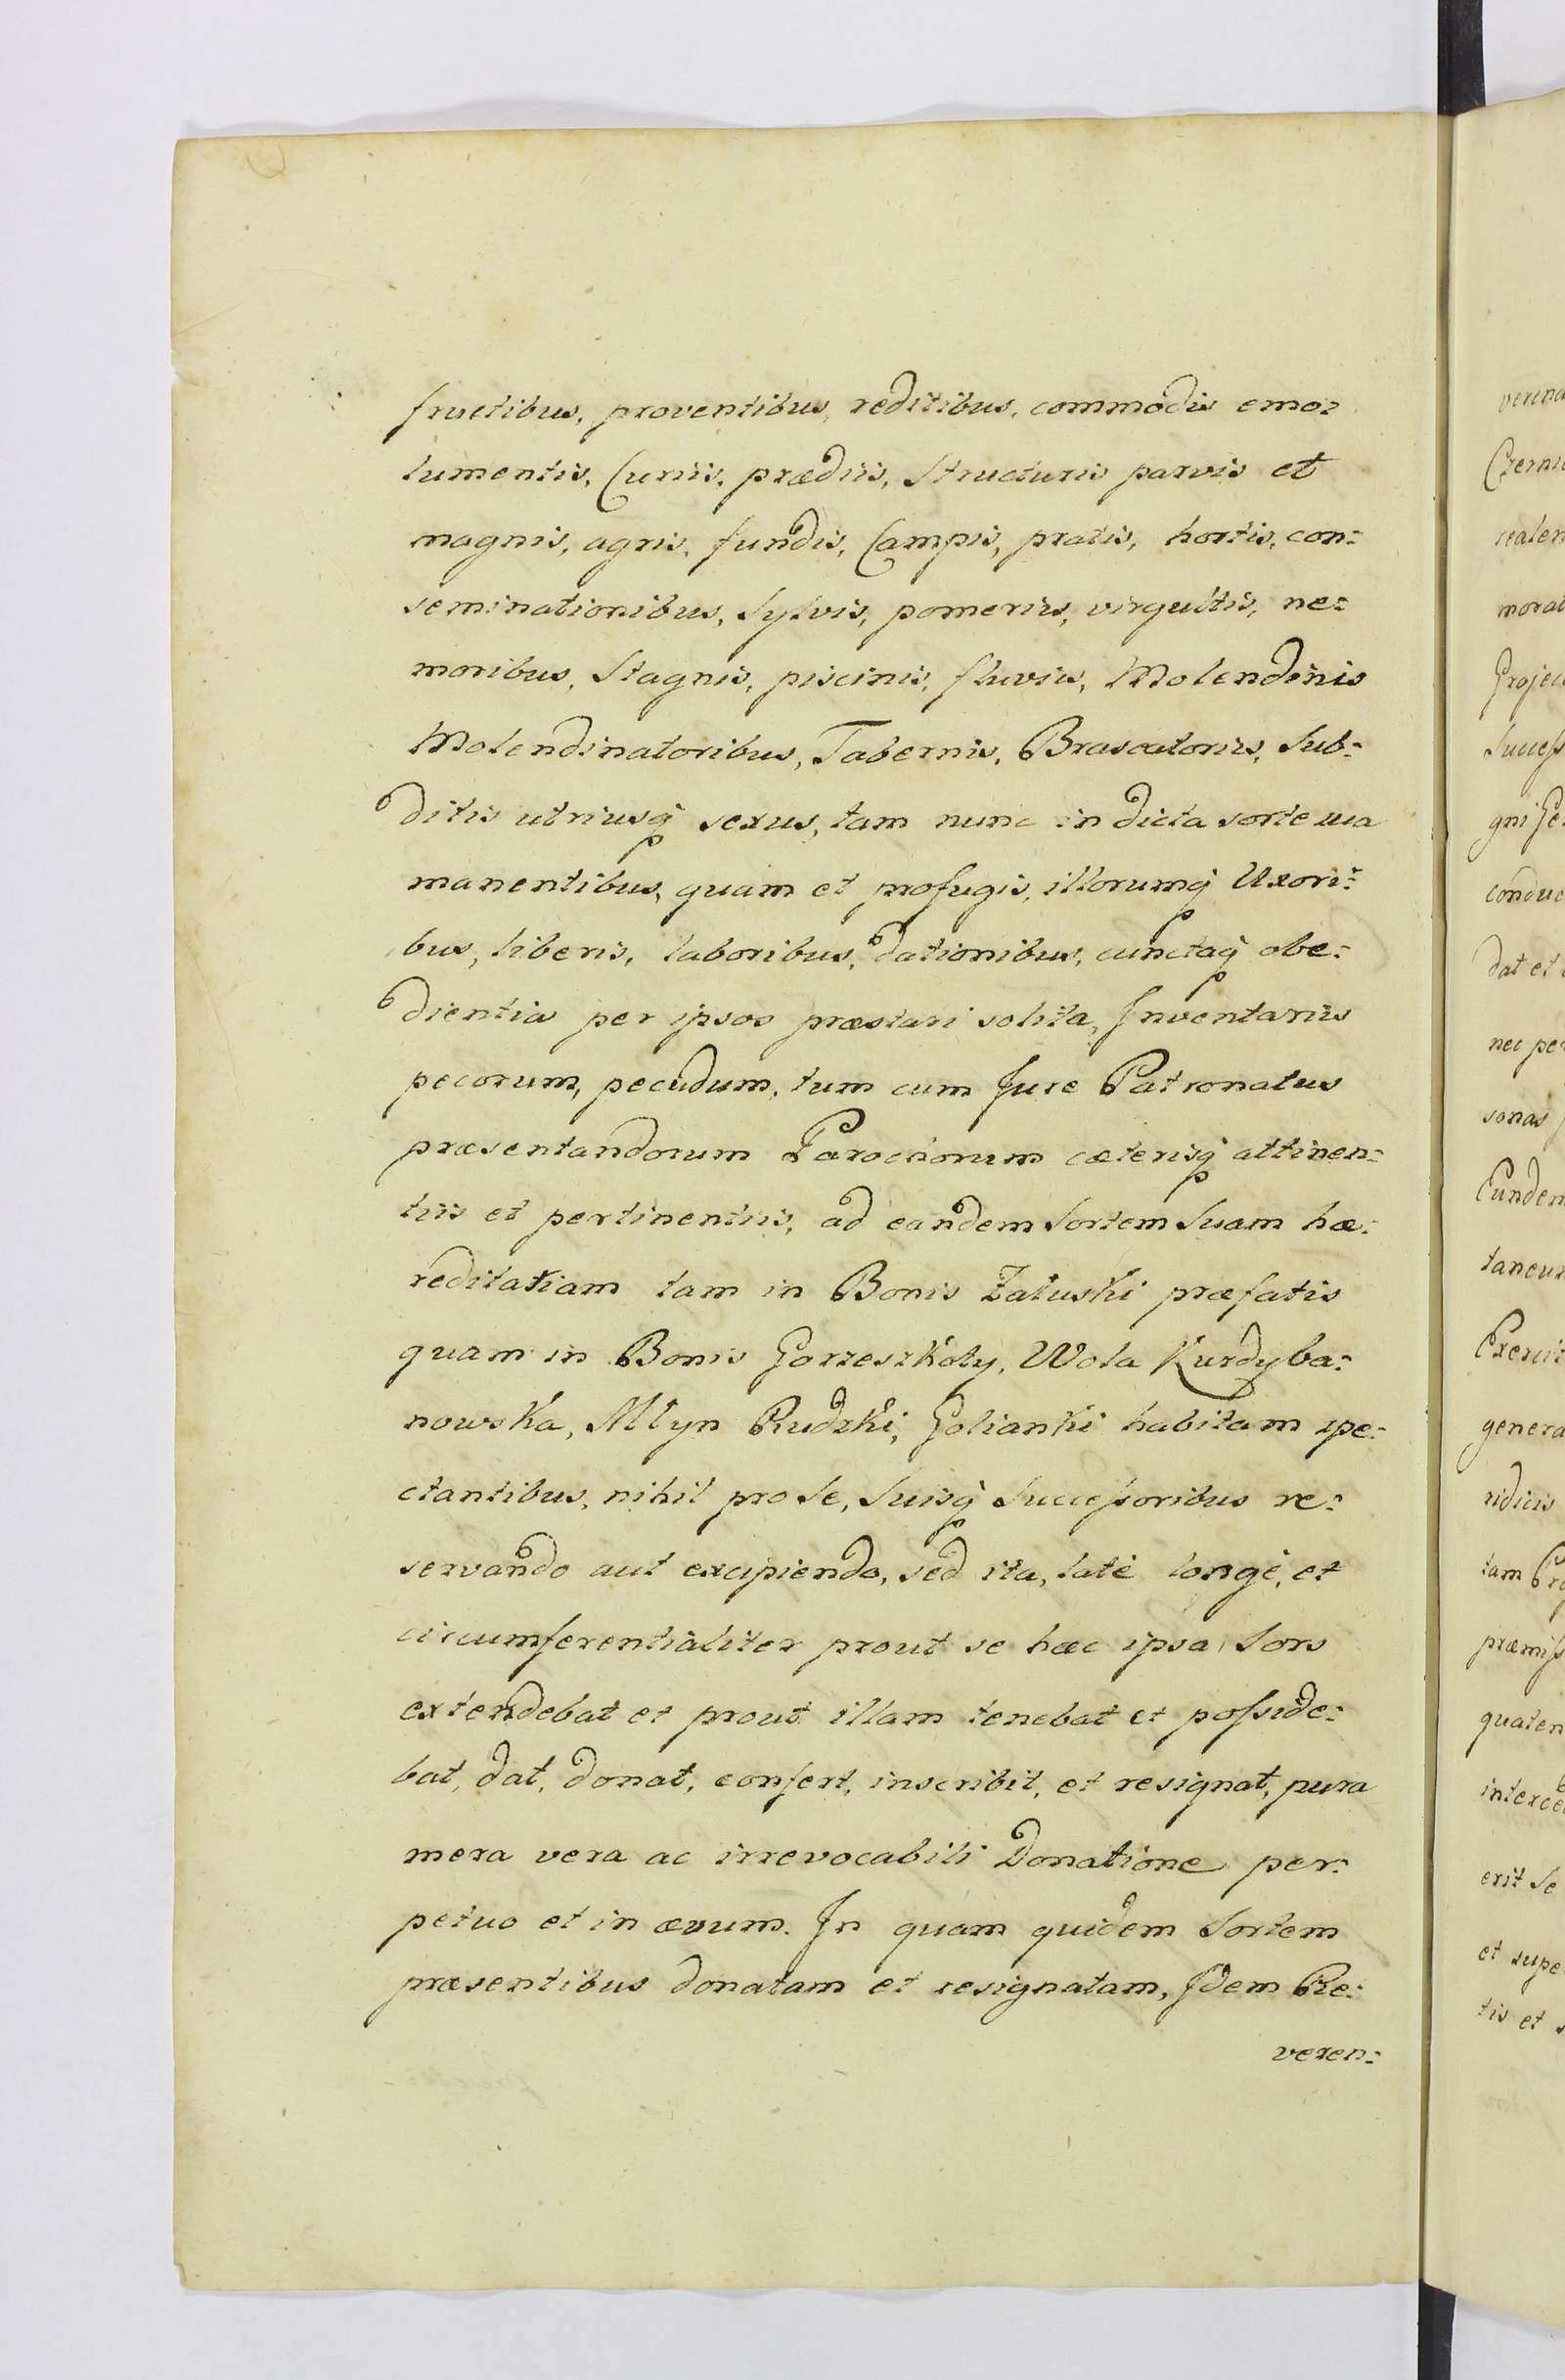 fructibus, proventibus, reditibus, commodis emo:
lumentis, Curiis, prædiis, Structuris parvis et
magnis, agris, fundis, Campis, pratis, hortis, con:
seminationibus, Sylvis, pomeriis, virgultis, ne:
moribus, Stagnis, piscinis, fluviis, Molendinis
Molendinatoribus, Tabernis, Braxatoriis, Sub:
ditis utriusq sexus, tam nunc in dicta sorte sua
manentibus, quam et profugis, illorumq Uxori:
bus, liberis, laboribus, dationibus, cunctaq obe:
dientia per ipsos præstari solita, Inventariis
pecorum, pecudum, tum cum Jure Patronatus
præsentandorum Parochorum cæterisq attinen:
tiis et pertinentiis, ad eandem Sortem Suam hæ:
reditariam tam in Bonis Załuski præfatis
quam in Bonis Gorzeszkoły, Wola Kurdyba:
nowska, Młyn Rudzki, Golianki habitam spe:
ctantibus, nihil pro Se, Suisq Successoribus re:
servando aut excipiendo, sed ita, latè longè, et
circumferentialiter prout se hæc ipsa Sors
extendebat et prout illam tenebat et posside:
bat, dat, donat, confert, inscribit, et resignat, pura
mera vera ac irrevocabili Donatione per:
petuo et in ævum. In quam quidem Sortem
præsentibus donatam et resignatam, Idem Re:
veren:
verend
Czerni
realem
morat
Project
Success
gni Ge
conduc
dat et
nec per
sonas
Eundem
taneum
Exerci
genera
ridicis
tam Pro
præmiss
quaten
interced
erit Se
et supe
tis et s